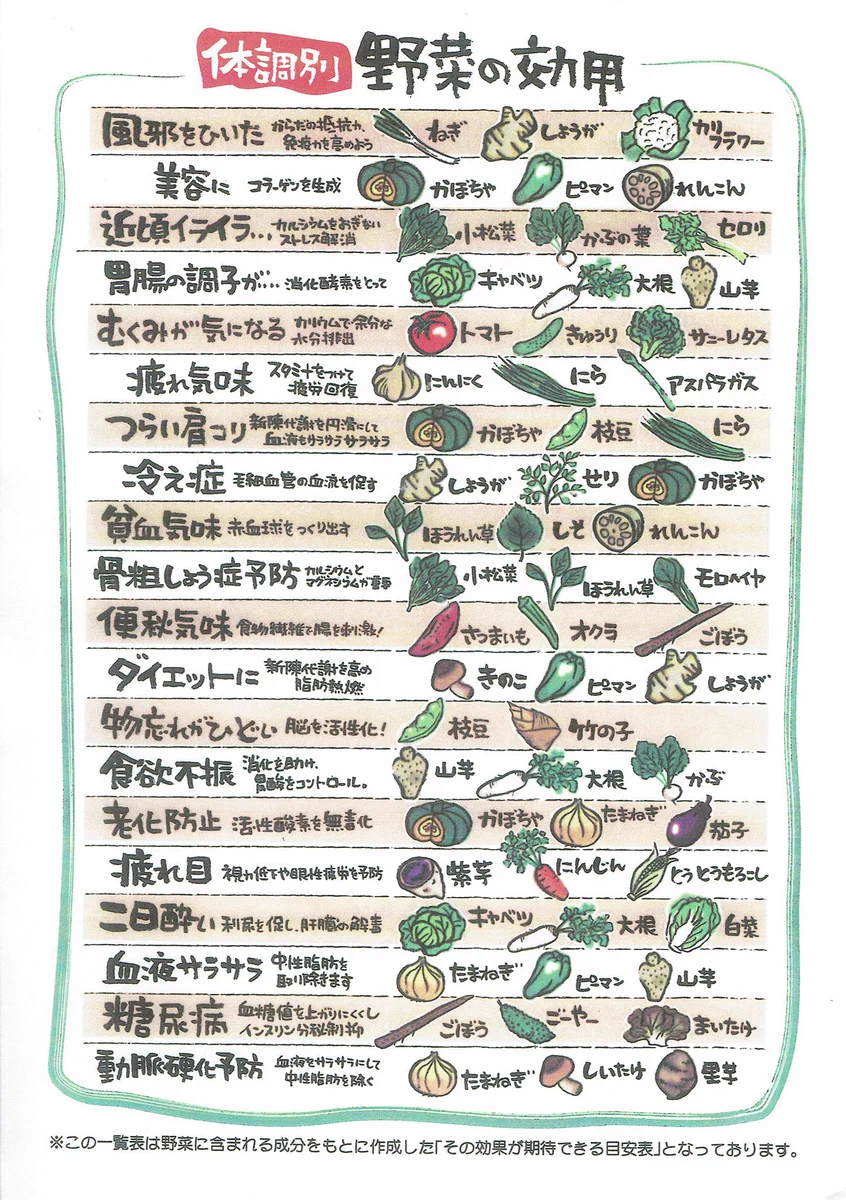 体調別 野菜の効用
風邪をひいた からだの抵抗力、免疫力を高めよう ねぎ しょうが カリフラワー
美容に コラーゲンを生成 かぼちゃ ピーマン れんこん
近頃イライラ… カルシウムをおぎないストレス解消 小松菜 かぶの葉 セロリ
胃腸の調子が… 消化酵素をとって キャベツ 大根 山芋
むくみが気になる カリウムで余分な水分排出 トマト きゅうり サニーレタス
疲れ気味 スタミナをつけて疲労回復 にんにく にら アスパラガス
つらい肩コリ 新陳代謝を円滑にして血液をサラサラサラサラ かぼちゃ 枝豆 にら
冷え症 毛細血管の血流を促す しょうが せり かぼちゃ
貧血気味 赤血球をつくり出す ほうれん草 しそ れんこん
骨粗しょう症予防 カルシウムとマグネシウムが重要 小松菜 ほうれん草 モロヘイヤ
便秘気味 食物繊維で腸を刺激! さつまいも オクラ ごぼう
ダイエットに 新陳代謝を高め脂肪熱燃 きのこ ピーマン しょうが
物忘れがひどい 脳を活性化! 枝豆 竹の子
食欲不振 消化を助け、胃酸をコントロール。 山芋 大根 かぶ
老化防止 活性酸素を無毒化 かぼちゃ たまねぎ 茄子
疲れ目 視力低下や眼性疲労を予防 紫芋 にんじん とうとうもろこし
二日酔い 利尿を促し、肝臓の解毒 キャベツ 大根 白菜
血液サラサラ 中性脂肪を取り除きます たまねぎ ピーマン 山芋
糖尿病 血糖値を上がりにくくしインスリン分秘制抑 ごぼう ごーやー まいたけ
動脈硬化予防 血液をサラサラにして中性脂肪を除く たまねぎ しいたけ 里芋
※この一覧表は野菜に含まれる成分をもとに作成した「その効果が期待できる目安表」となっております。